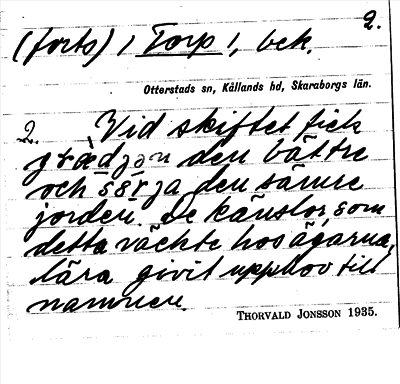 2.
(forts) 1 Torp 1, bek.
Otterstads sn, Kållands hd, Skaraborgs län.
2. Vid skiftet fick
grædjən den bättre
och sərja den sämre
jorden. De känslor, som
detta väckte hos ägarna,
lära givit upphov till
namnen.
THORVALD JONSSON 1935.